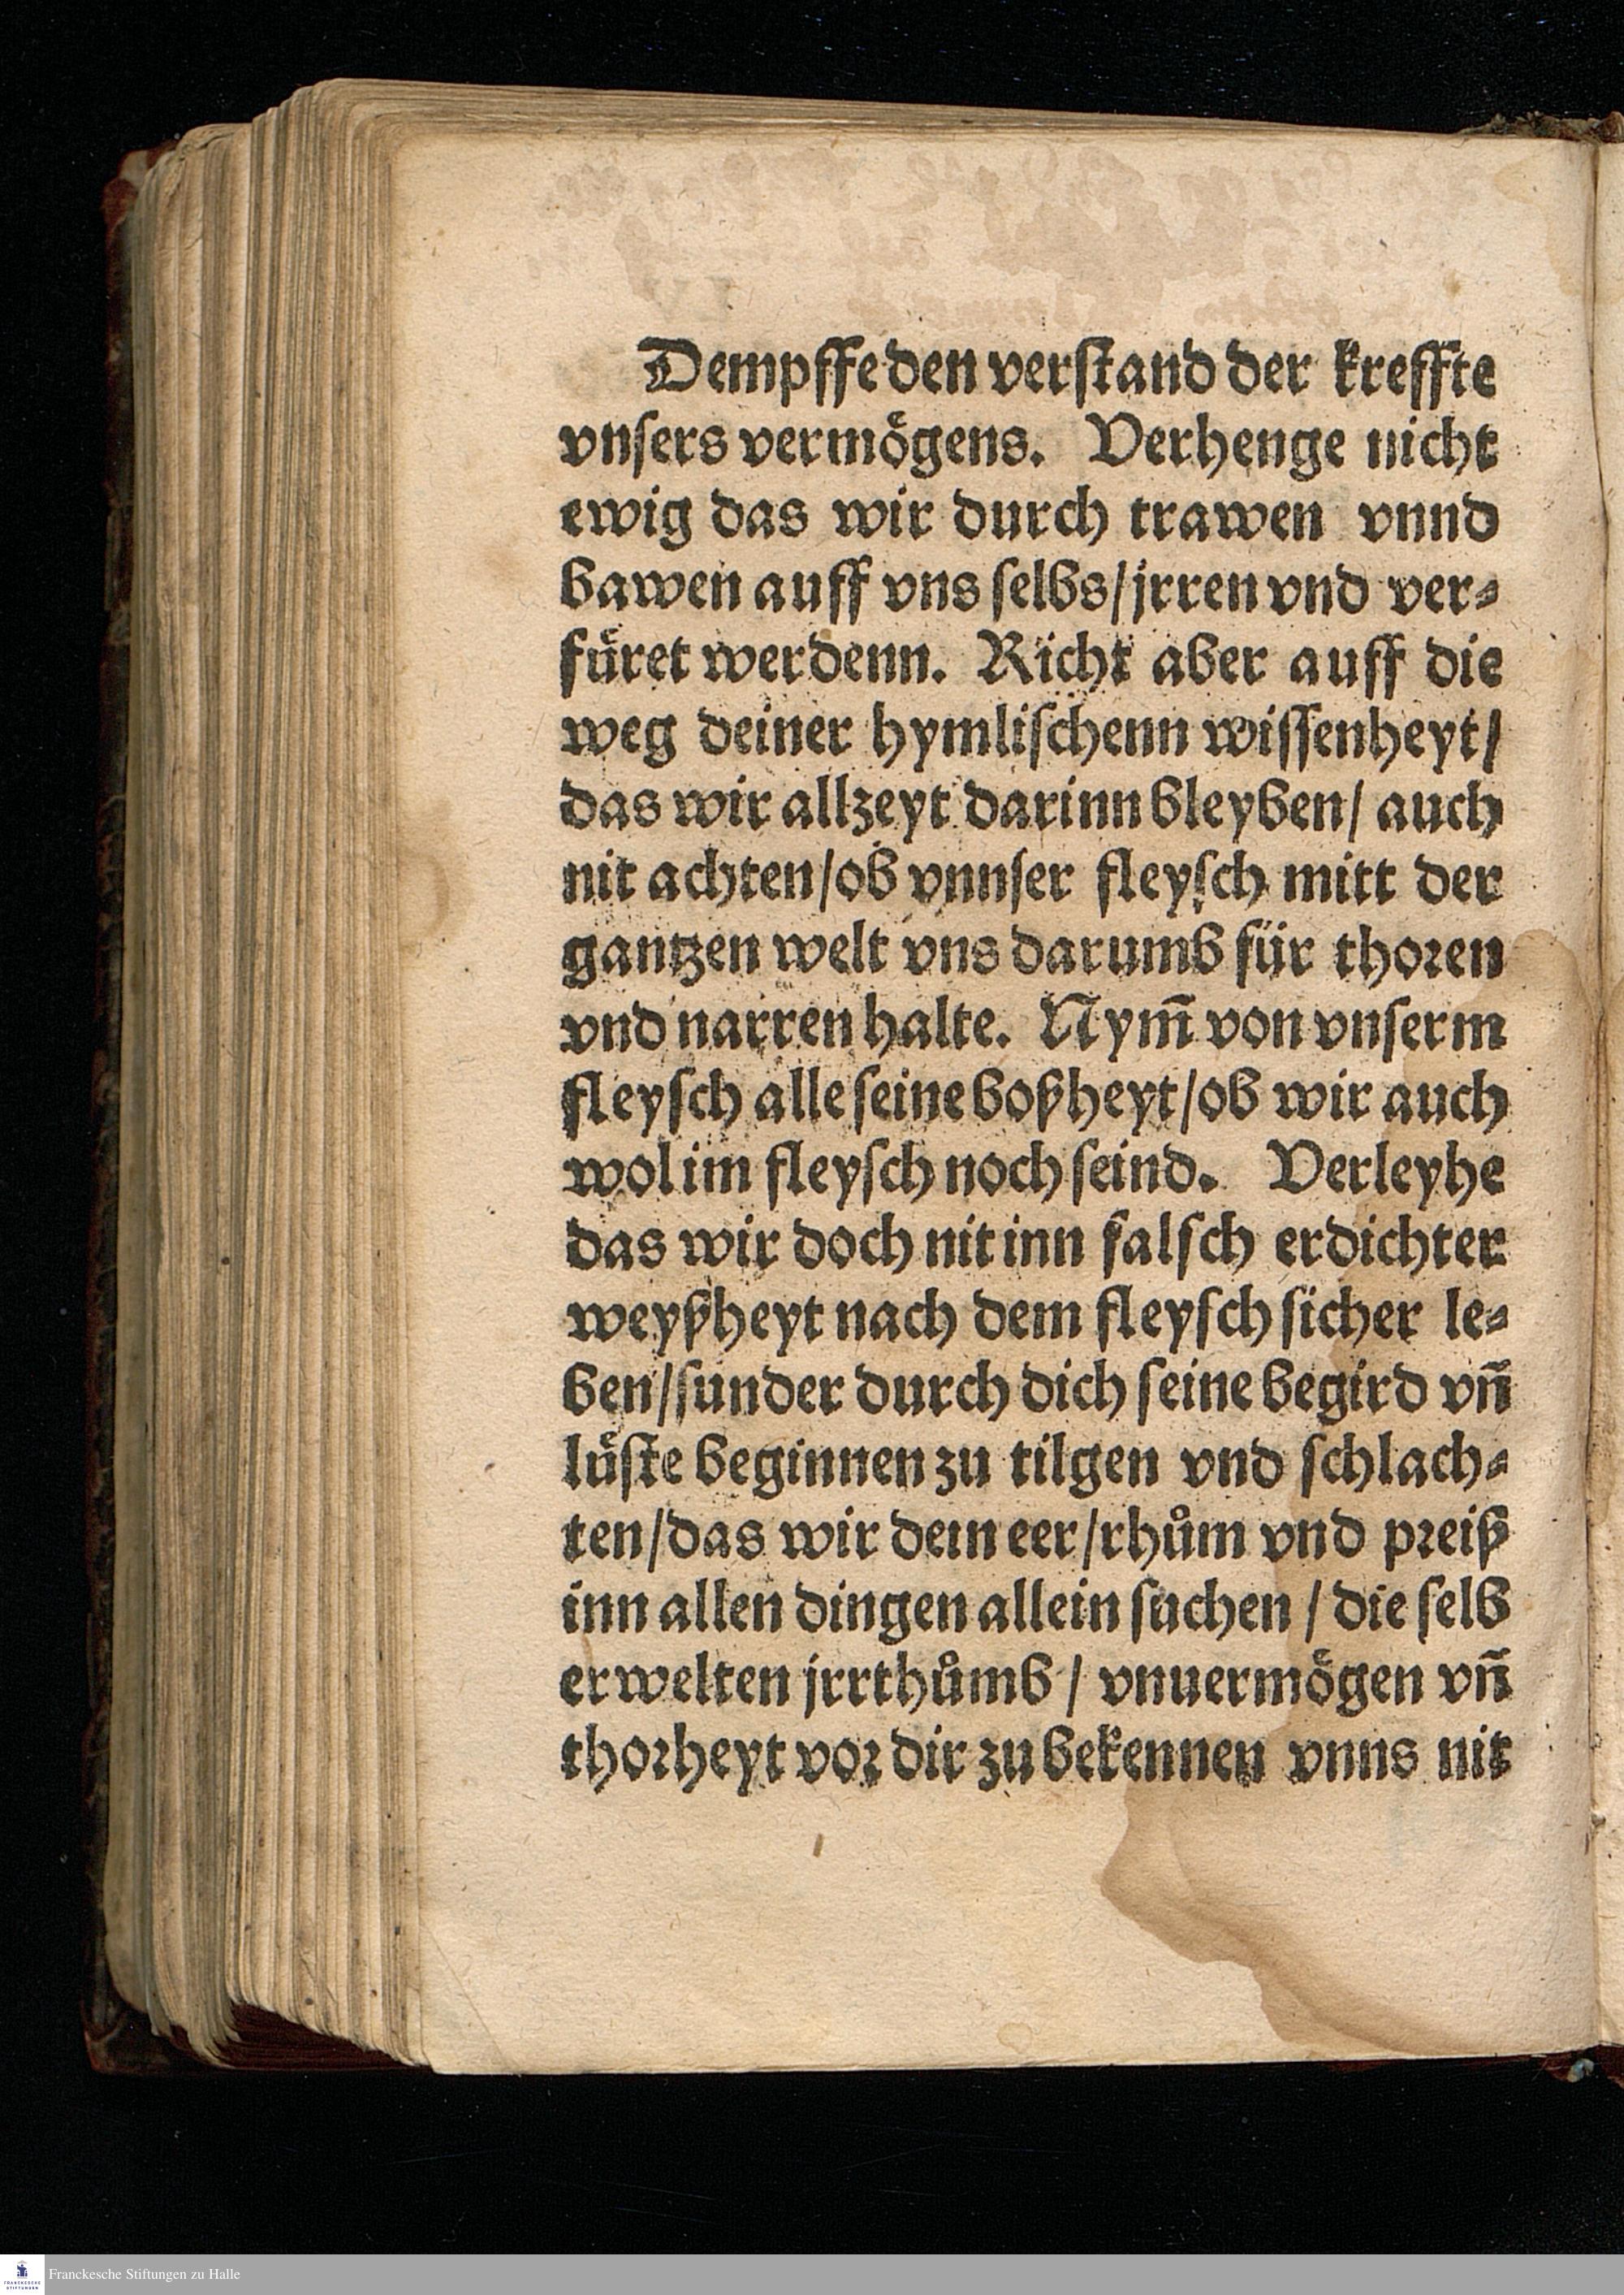 Dempffe den verstand der kreffte
vnsers vermoͤgens. Verhenge nicht
ewig das wir durch trawen vnnd
bawen auff vns selbs/jrren vnd ver⸗
fuͤret werdenn. Richt aber auff die
weg deiner hymlischenn wissenheyt/
das wir allzeyt darinn bleyben/ auch
nit achten/ob vnnser fleysch mitt der
gantzen welt vns darumb für thoren
vnd narren halte. Nym̄ von vnserm
fleysch alle seine boßheyt/ob wir auch
wol im fleysch noch seind. Verleyhe
das wir doch nit inn falsch erdichter
weyßheyt nach dem fleysch sicher le⸗
ben/sunder durch dich seine begird vn̄
luͤste beginnen zu tilgen vnd schlach⸗
ten/das wir dein eer/rhům vnd preiß
inn allen dingen allein suchen / die selb
erwelten jrrthůmb / vnuermoͤgen vn̄
thorheyt vor dir zu bekennen vnns nit
Franckesche Stiftungen zu Halle